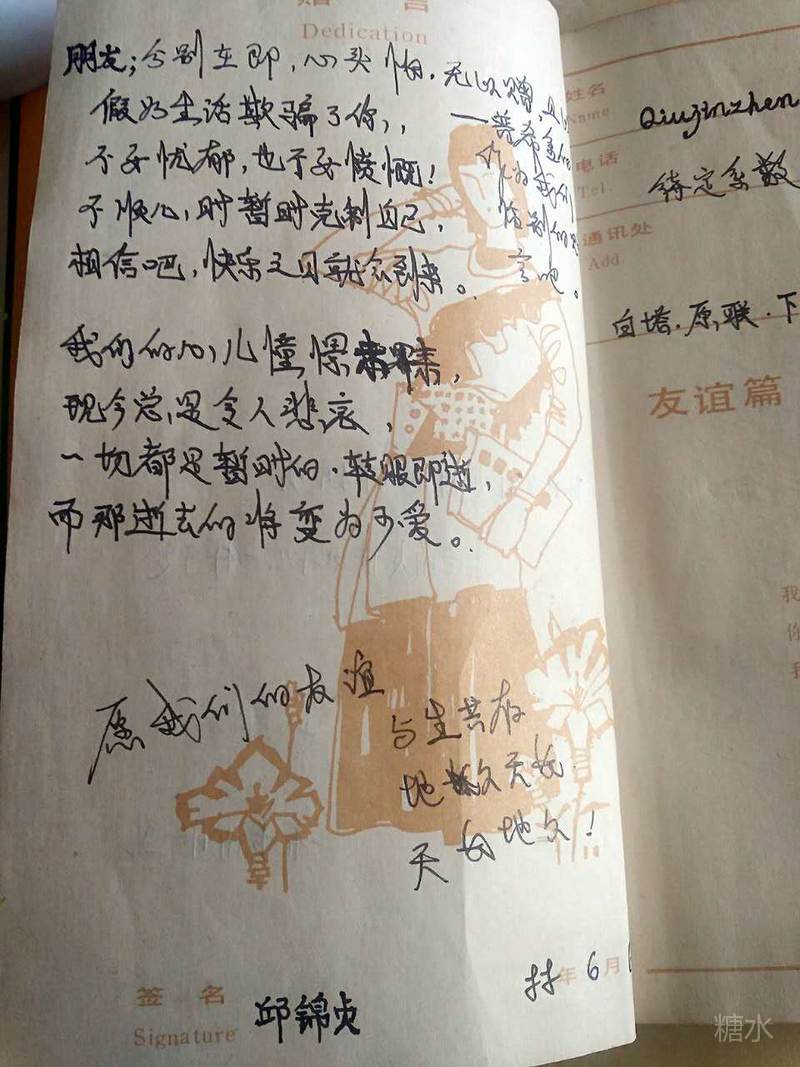 赠 言
Dedication
朋友；今别在即，心头怕．无以赠，
假如生活欺骗了你，，
——普希金
不要忧郁，也不要愤慨！
作为我们
不顺心时暂时克制自己，
临别的
相信吧，快乐之日就会到来。
言吧。
我们的心儿憧憬未来，
现今总是令人悲哀，
一切都是暂时的．转眼即逝，
而那逝去的将变为可爱。
愿我们的友谊
与生共存
地久天长
天长地久！
年 6 月
签 名
Signature
邱锦贞
姓名
Name
Qiujinzhen
电话
Tel.
待定系数
通讯处
Add
白塔．原联．下
友谊篇
我
你
我
糖水